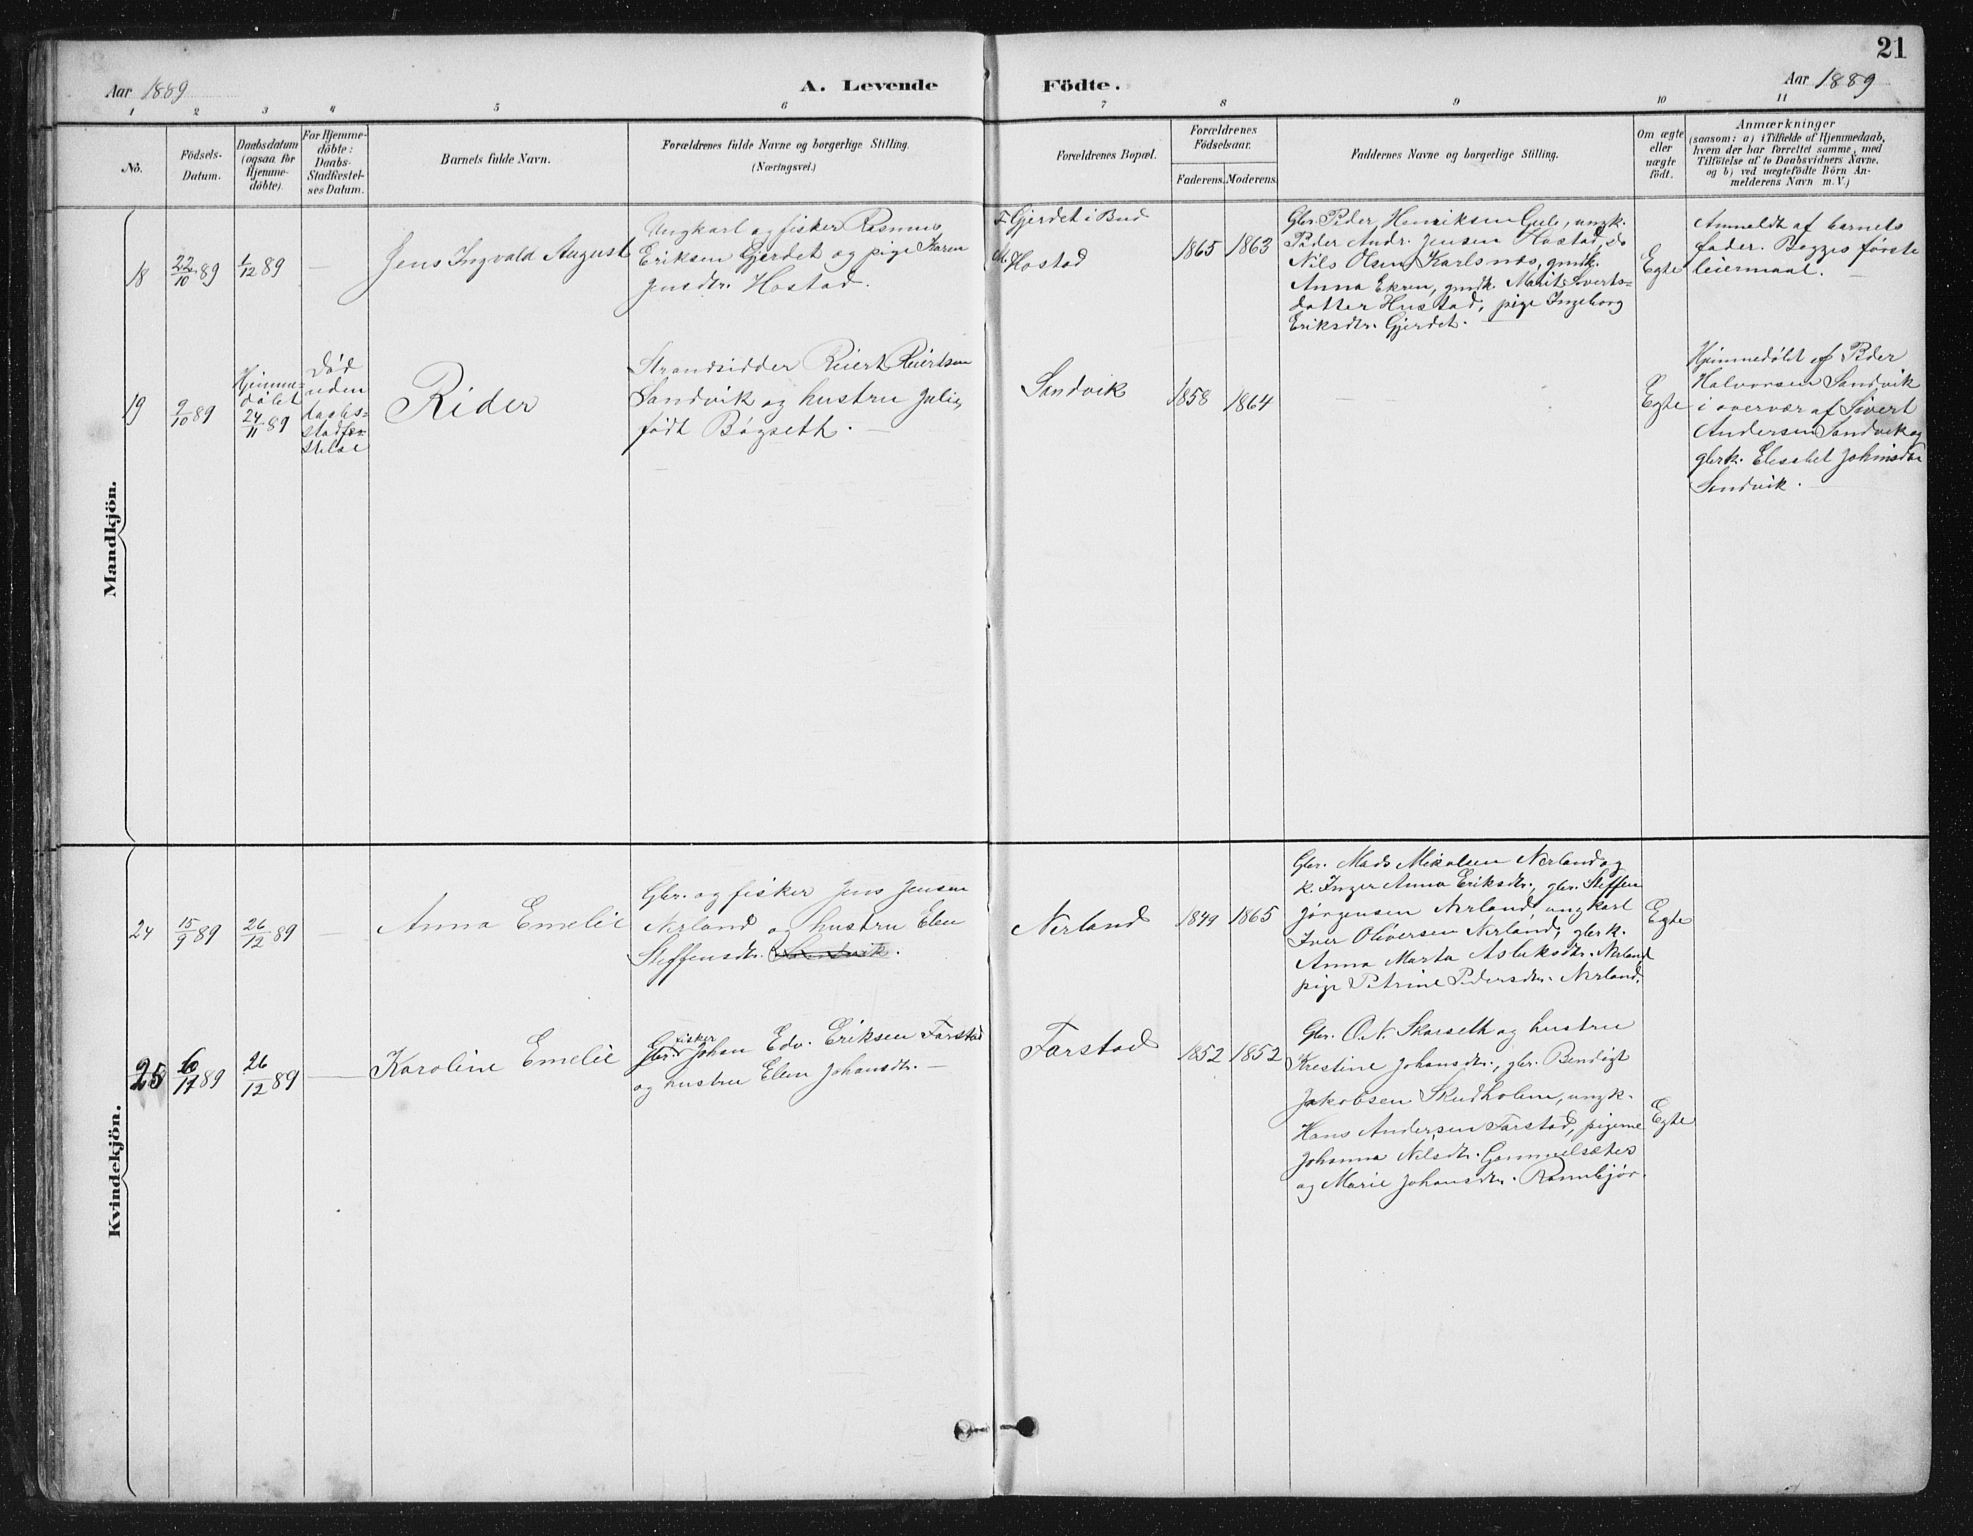 21
Aar 1889
A. Levende
Födte.
Aar 1889
1 2 3 4 5 6 7 8 9 10 11
No.
Födsels-
Datum.
Daabsdatum
(ogsaa for
Hjemme-
döbte).
For Hjemme-
döbte:
Daabs-
Stadfæstel-
ses Datum.
Barnets fulde Navn.
Forældrenes fulde Navne og borgerlige Stilling.
(Næringsvei.)
Forældrenes Bopæl.
Forældrenes
Födselsaar.
Faderens.
Moderens.
Faddernes Navne og borgerlige Stilling.
Om ægte
eller
uægte
födt.
Anmærkninger
(saasom: a) i Tilfælde af Hjemmedaab,
hvem der har forrettet samme, med
Tilföielse af to Daabsvidners Navne,
og b) ved uægtefödte Börn An-
melderens Navn m. V.)
Mandkjön.
18
22/10 89
1/12 89
—
Jens Ingvald August
Ungkarl og fisker Rasmus
Eriksen Gjerdet og pige Karen
Jensdtr. Hostad.
F. Gjerdet i Bud
M. Hostad
1865
1863
Gbr. Peder Henriksen Gule, ungk.
Peder Andr. Jensen Hostad, do
Nils Olsen Karlsnæs, gmdk.
Anna Ekren, gmdk. Marit Siverts-
datter Hustad, pige Ingeborg
Eriksdtr. Gjerdet.
Egte
Anmeldt af barnets
fader. Begges første
leiermaal.
19
9/10 89
Hjemme-
døbt
24/11 89
Død
uden
daabs-
stadfæ-
stelse
Rider
Strandsidder Reiert Reiertsen
Sandvik og hustru Julie,
født Bøgseth.
Sandvik
1858
1864
Egte
Hjemmedøbt af Peder
Halvorsen Sandvik
i overvær af Sivert
Andersen Sandvik og
gbrk. Elisabet Johnsdtr
Sandvik.
Kvindekjön.
24
15/9 89
26/12 89
—
Anna Emelie
Gbr. og fisker Jens Jensen
Nerland og hustru Elen
Steffensdtr. Sandvik.
Nerland
1849
1865
Gbr. Mads Mikalsen Nerland og
k. Inger Anna Eriksdtr., gbr. Steffen
Jørgensen Nerland, ungkarl
Iver Oliversen Nerland, gbrk.
Anna Marta Aslaksdtr. Nerland
pige Petrine Pedersdtr. Nerland.
Egte
25
89
26/12 89
—
Karoline Emelie
fisker
Gbr. Johan Edv. Eriksen Farstad
og hustru Elen Johansdtr.
Farstad
1852
1852
Gbr. O. N. Skarseth og hustru
Krestine Johansdtr., gbr. Bendigt
Jakobsen Skudholm, ungk.
Hans Andersen Farstad, pigerne
Johanna Nilsdtr. Gammelsæter
og Marie Johansdtr.
Egte